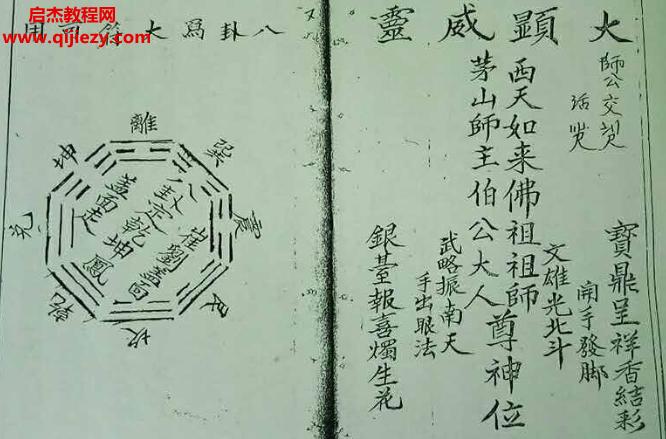 启杰教程网
www.qijiezy.com
大顯威靈
師公交契
寶鼎呈祥香結彩
開手發脚
文雄光北斗
西天如来佛祖祖師
茅山師主伯公大人
尊神位
武略振南天
手出眼法
銀臺報喜燭生花
八卦爲大
用
離
巽
震
艮
坎
乾
兑
坤
八卦定乾坤